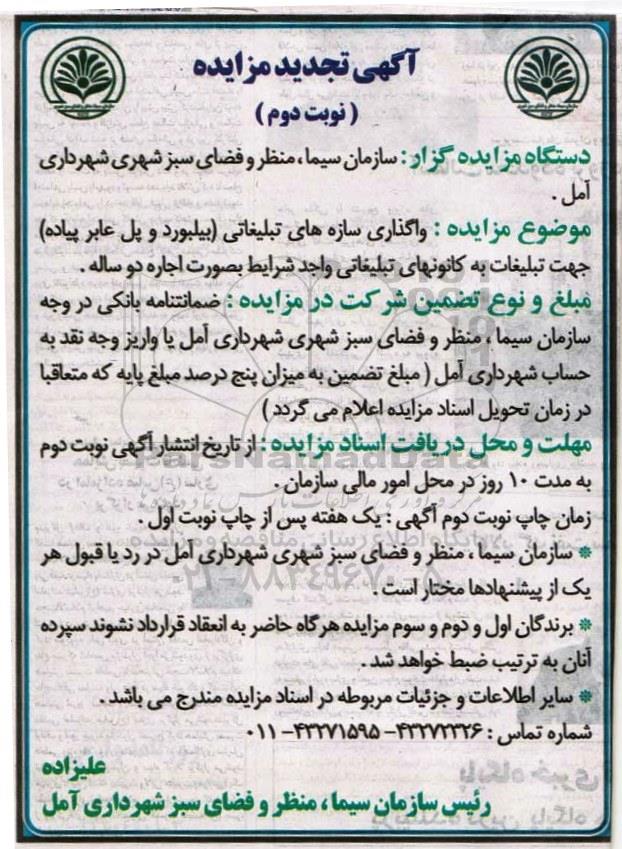 آگهی تجدید مزایده
( نوبت دوم )
دستگاه مزایده گزار : سازمان سیما ، منظر و فضای سبز شهری شهرداری
آمل .
موضوع مزایده : واگذاری سازه های تبلیغاتی (بیلبورد و پل عابر پیاده)
جهت تبلیغات به کانونهای تبلیغاتی واجد شرایط بصورت اجاره دو ساله .
مبلغ و نوع تضمین شرکت در مزایده : ضمانتنامه بانکی در وجه
سازمان سیما ، منظر و فضای سبز شهری شهرداری آمل یا واریز وجه نقد به
حساب شهرداری آمل ( مبلغ تضمین به میزان پنج درصد مبلغ پایه که متعاقبا
در زمان تحویل اسناد مزایده اعلام می گردد )
مهلت و محل دریافت اسناد مزایده : از تاریخ انتشار آگهی نوبت دوم
به مدت ۱۰ روز در محل امور مالی سازمان .
زمان چاپ نوبت دوم آگهی : یک هفته پس از چاپ نوبت اول .
* سازمان سیما ، منظر و فضای سبز شهری شهرداری آمل در رد یا قبول هر
یک از پیشنهادها مختار است .
* برندگان اول و دوم و سوم مزایده هرگاه حاضر به انعقاد قرارداد نشوند سپرده
آنان به ترتیب ضبط خواهد شد .
* سایر اطلاعات و جزئیات مربوطه در اسناد مزایده مندرج می باشد .
شماره تماس : ۴۳۲۷۲۳۲۶- ۴۳۲۷۱۵۹۵- ۰۱۱
علیزاده
رئیس سازمان سیما ، منظر و فضای سبز شهرداری آمل
ParsNamadData
۰۲۱-۸۸۳۴۹۶۷۰
پایگاه خبری